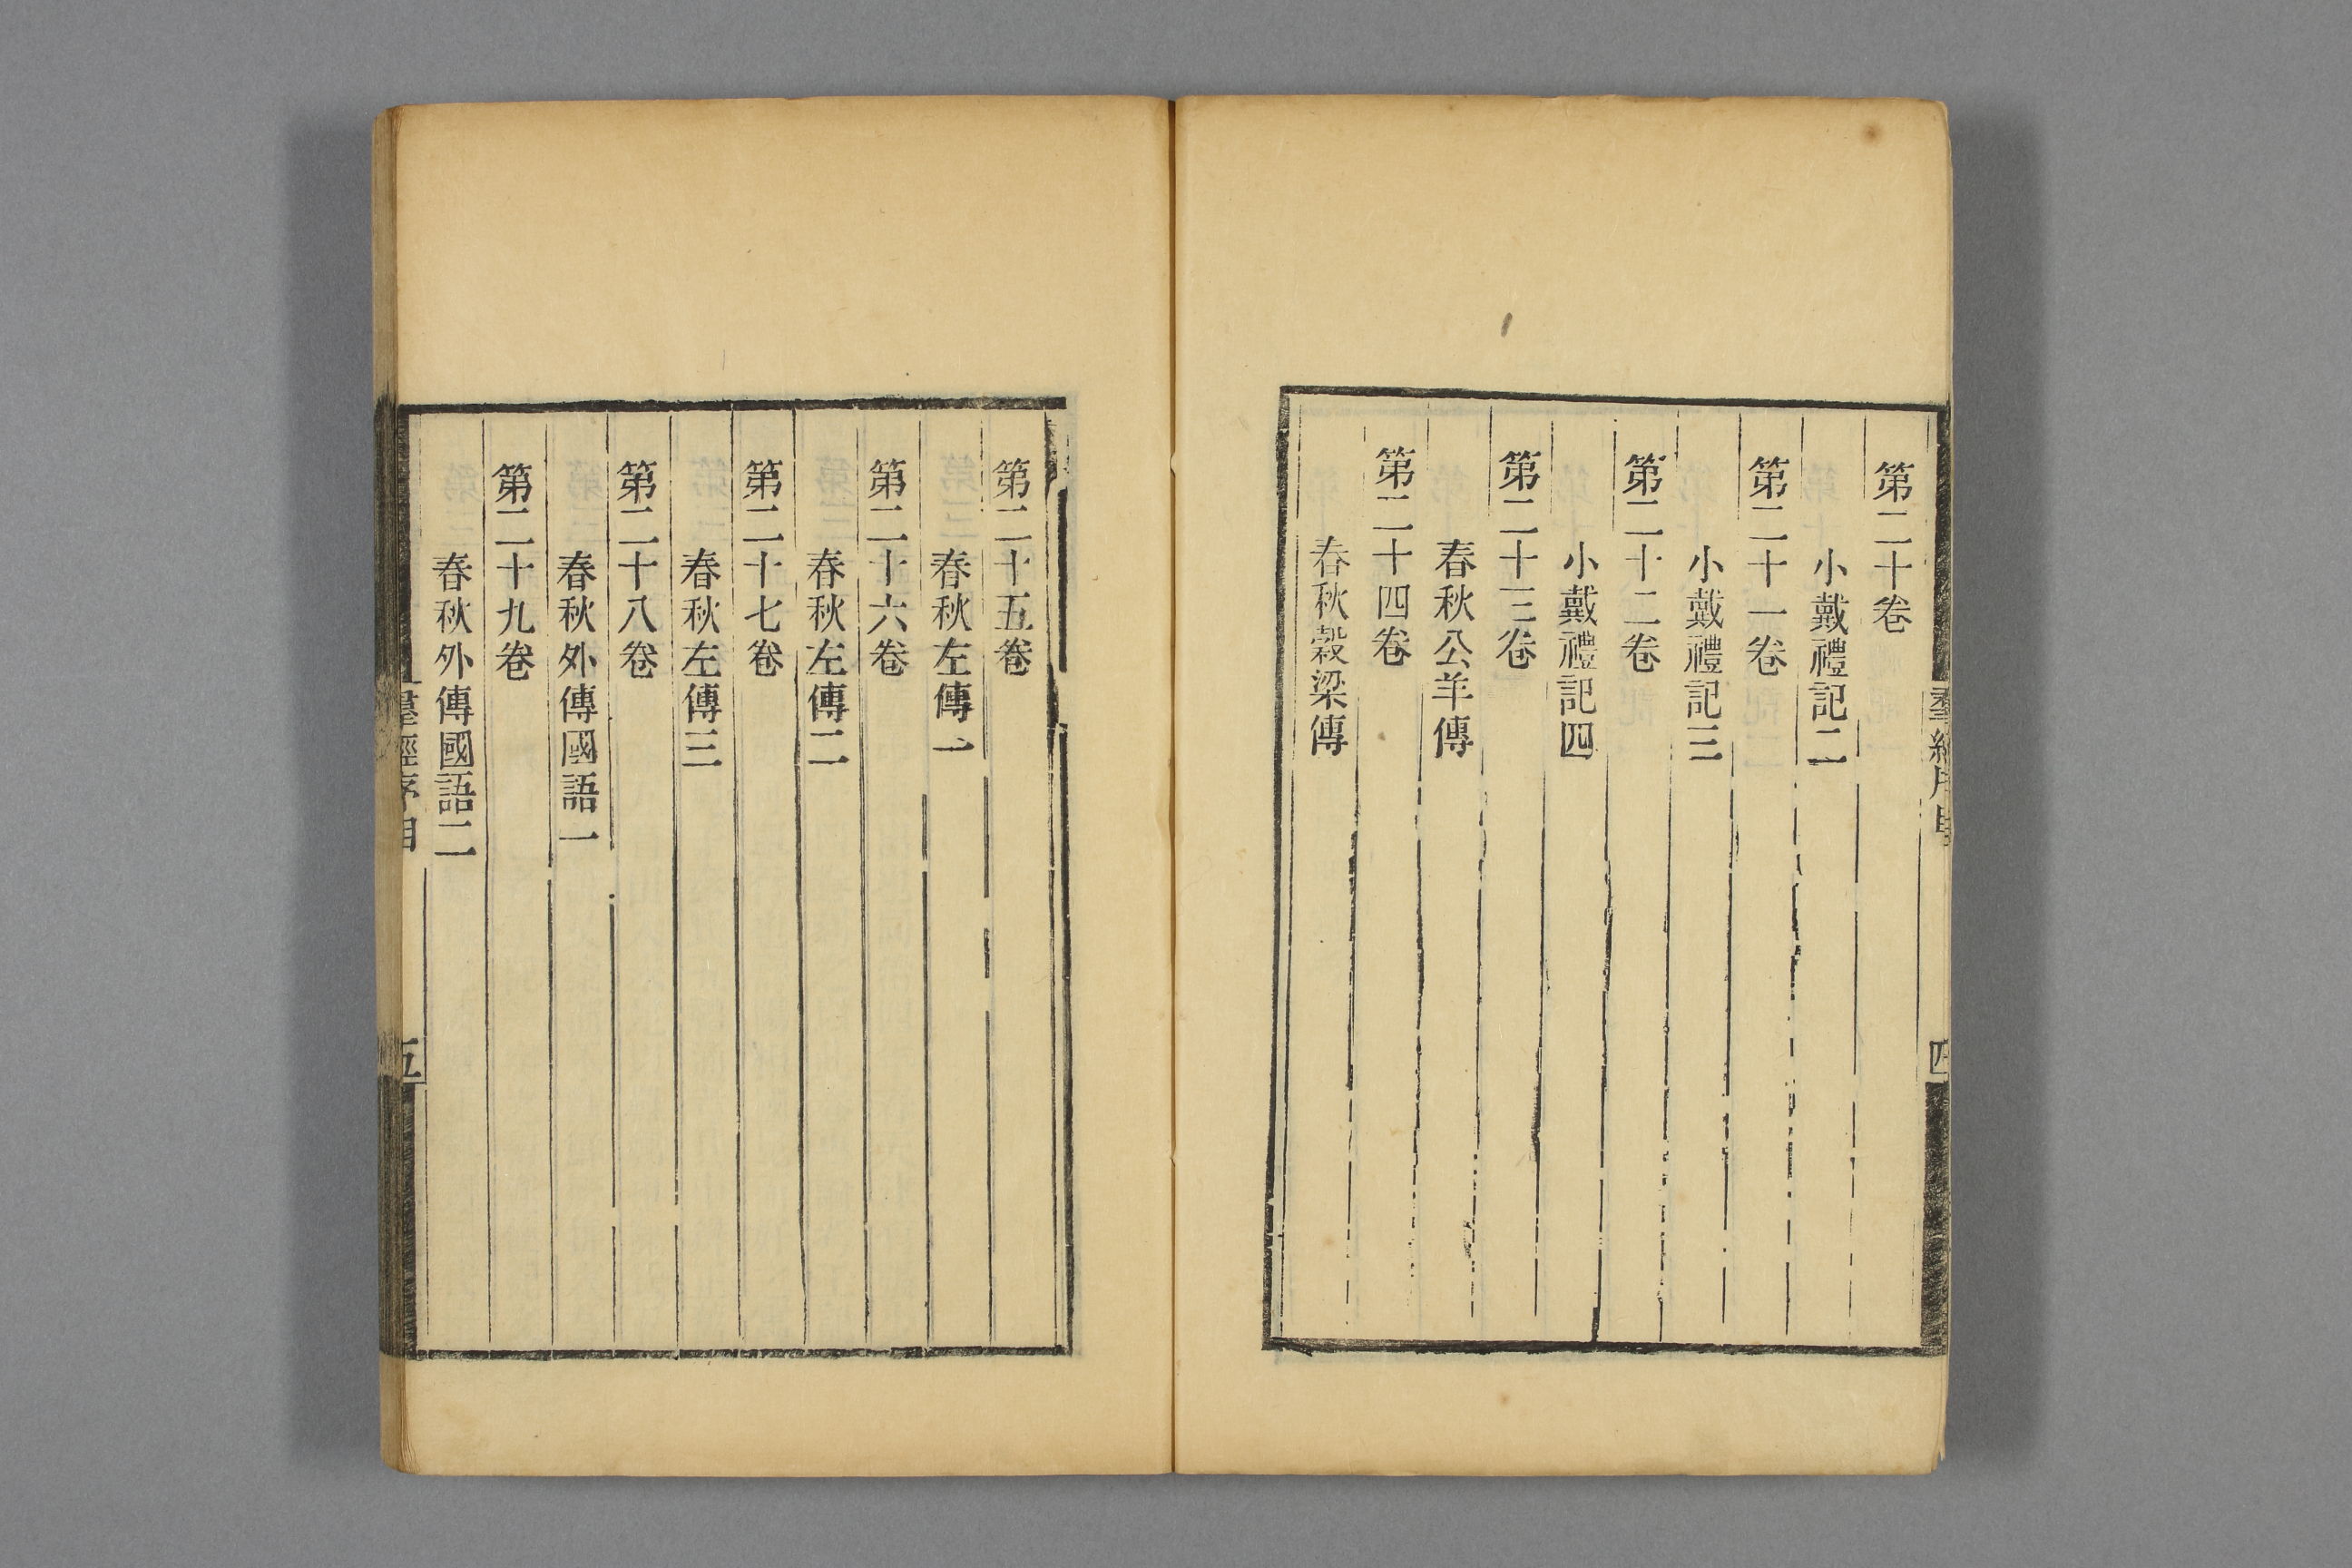 第二十卷
小戴禮記二
第二十一卷
小戴禮記三
第二十二卷
小戴禮記四
第二十三卷
春秋公羊傳
第二十四卷
春秋穀梁傳
第二十五卷
春秋左傳一
第二十六卷
春秋左傳二
第二十七卷
春秋左傳三
第二十八卷
春秋外傳國語一
第二十九卷
春秋外傳國語二
羣經序目
五